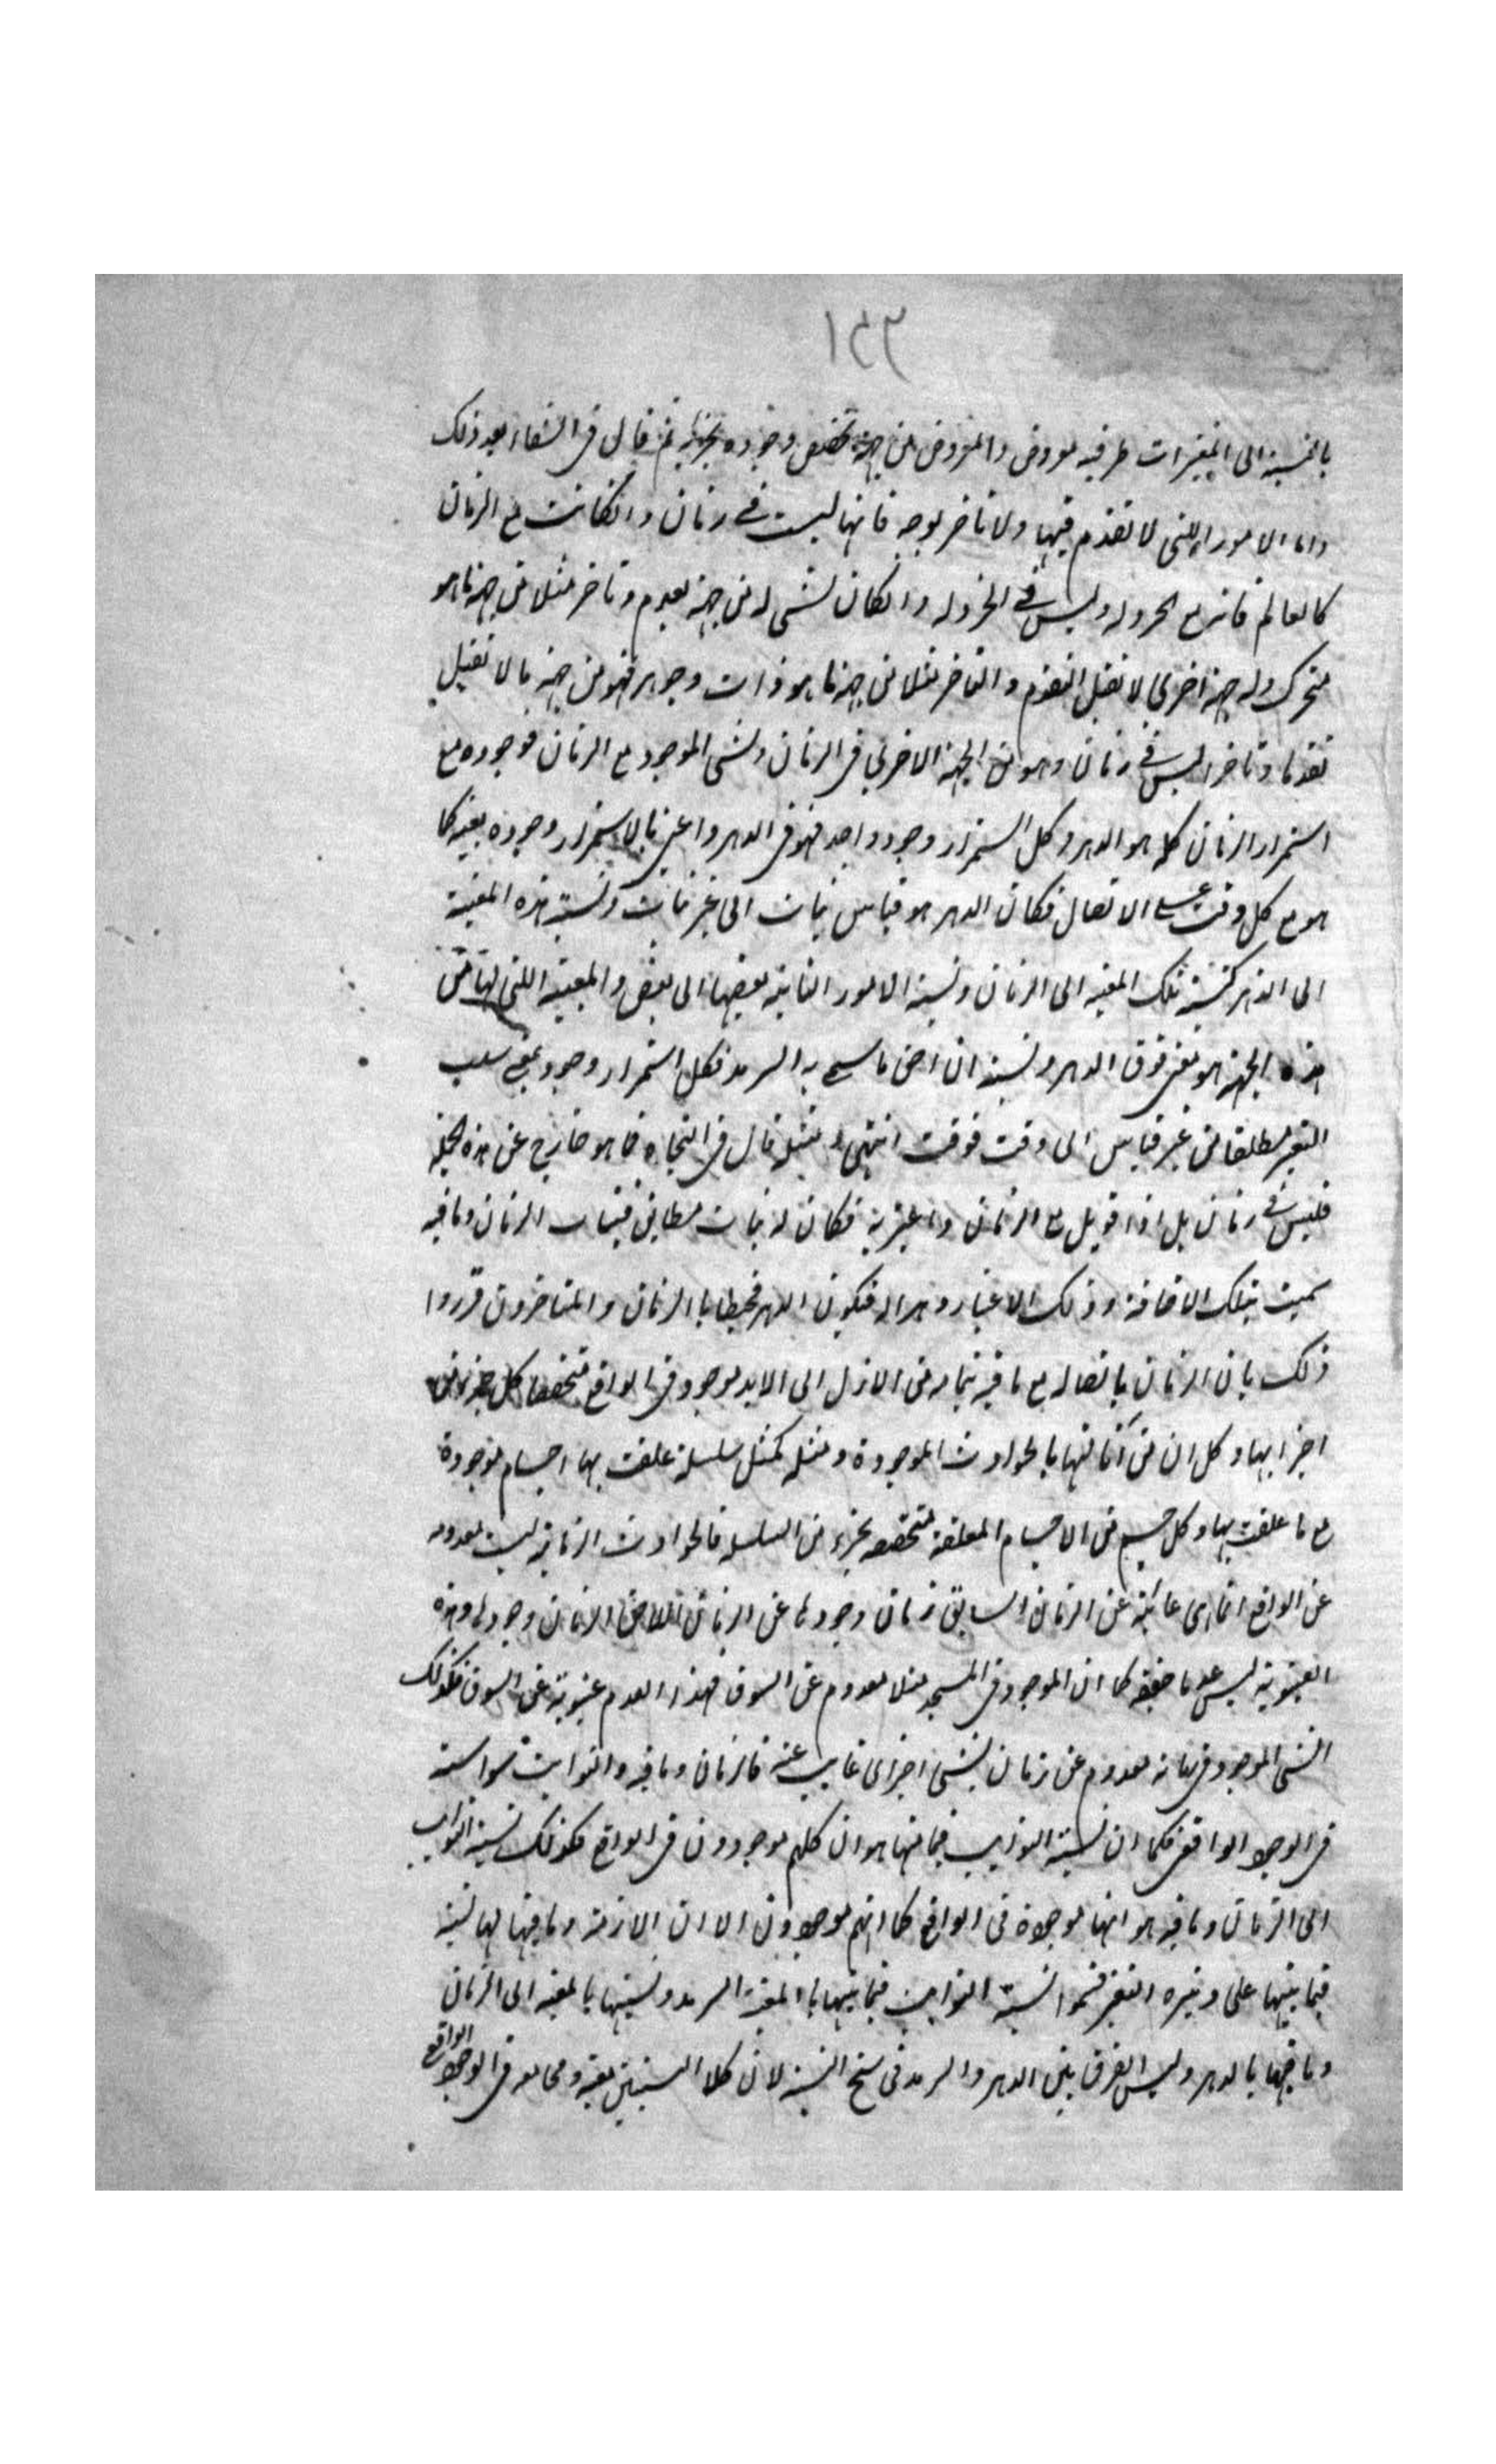 ١٥٣
بالنسبة الى المتغيرات ظرفيه معروض والمعروض من جهة تخصص وجوده بجزئه ثم قال فى الشفاء بعد ذلك
واما الامور اللتى لا تقدم فيها ولا تاخر بوجه فانها ليست فى زمان وانكانت مع الزمان
كالعالم فانه مع الخردله وليس فى الخردله وانكان لشى له من جهة تقدم وتاخر مثلا من جهة ما هو
متحرك وله جهة اخرى لا تقبل التقدم والتاخر مثلا من جهة ما هو ذات وجوهر فهو من جهة ما لا تقبل
تقدما وتاخرا ليس فى زمان وهو من الجهة الاخرى فى الزمان والشى الموجود مع الزمان فوجوده مع
استمرار الزمان كله هو الدهر وكل استمرار وجود واحد فهو فى الدهر واعنى بالاستمرار وجوده بعينه كما
هو مع كل وقت على الاتصال فكان الدهر هو قياس ثبات الى غير ثبات ونسبة هذه المعية
الى الدهر كنسبة تلك المعيه الى الزمان ونسبة الامور الثابته بعضها الى بعض والمعية اللتى لها من
هذه الجهة هو معنى فوق الدهر ونسبة ان احق ما سمى به السرمد فكل استمرار وجود بمعنى سلب
التغير مطلقا من غير قياس الى وقت فوقت انتهى وبمثله قال فى النجاه فما هو خارج عن هذه الجمله
فليس فى زمان بل اذا قوبل مع الزمان واعتبر به فكان له ثبات مطابق لثبات الزمان وما فيه
سميت تلك الاضافة وذلك الاعتبار دهرا له فيكون الدهر محيطا بالزمان والمتاخرون قرروا
ذلك بان الزمان باتصاله مع ما فيه بتمامه من الازل الى الابد موجود فى الواقع متخصصا كل جزء من
اجزائها وكل ان من آناتها بالحوادث الموجودة ومثله كمثل سلسلة علقت بها اجسام موجودة
مع ما علقت بها وكل جسم من الاجسام المعلقة متخصصه بجزء من السلسله فالحوادث الزمانية ليست معدومه
عن الواقع انما هى غائبة عن الزمان السابق زمان وجودها عن الزمان اللاحق لزمان وجودها وهذه
الغيبوبة ليس عدما حقيقه كما ان الموجود فى المسجد مثلا معدوم عن السوق فهذا العدم غيبوبة عن السوق فكذلك
الشى الموجود فى زمانه معدوم عن زمان لشى اخر اى غايب عنه فالزمان وما فيه والثوابت سواسية
فى الوجود الواقعى فكما ان نسبة الثوابت فيما بينها هو ان كلهم موجودون فى الواقع فكذلك نسبة الثوابت
الى الزمان وما فيه هو انها موجودة فى الواقع كما انهم موجودون الا ان الازمنة وما فيها لها نسبة
فيما بينها على وتيره التغير فسموا نسبة الثوابت فيما بينها بالمعية السرمد ونسبتها بالمعيه الى الزمان
وما فيها بالدهر وليس الفرق بين الدهر والسرمد فى سنخ النسبة لان كلا النسبتين معية ومجامعه فى الوجود الواقع